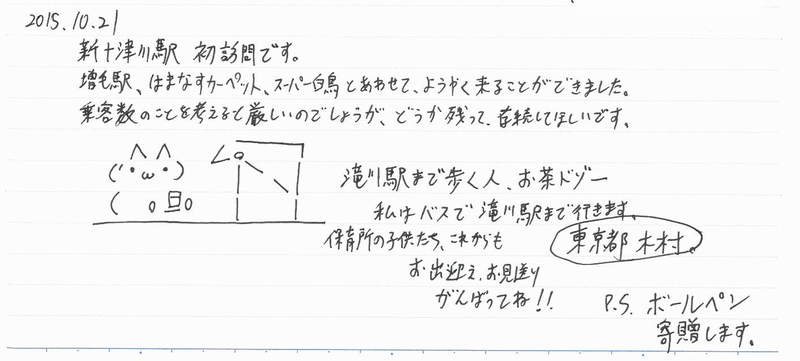 2015.10.21
新十津川駅 初訪問です。
増毛駅、はまなすカーペット、スーパー白鳥とあわせて、ようやく来ることができました。
乗客数のことを考えると厳しいのでしょうが、どうか残って、存続してほしいです。
滝川駅まで歩く人、お茶ドゾー
私はバスで滝川駅まで行きます。
保育所の子供たち、これからも
お出迎え、お見送り
がんばってね!!
東京都 木村
P.S. ボールペン
寄贈します。